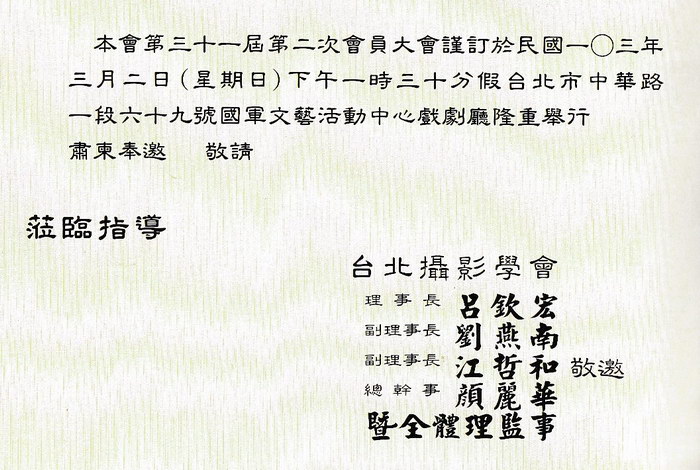 本會第三十一屆第二次會員大會謹訂於民國一〇三年
三月二日(星期日)下午一時三十分假台北市中華路
一段六十九號國軍文藝活動中心戲劇廳隆重舉行
肅柬奉邀 敬請
蒞臨指導
台北攝影學會
理事長 呂欽宏
副理事長 劉燕南
副理事長 江哲和 敬邀
總幹事 顏麗華
暨全體理監事